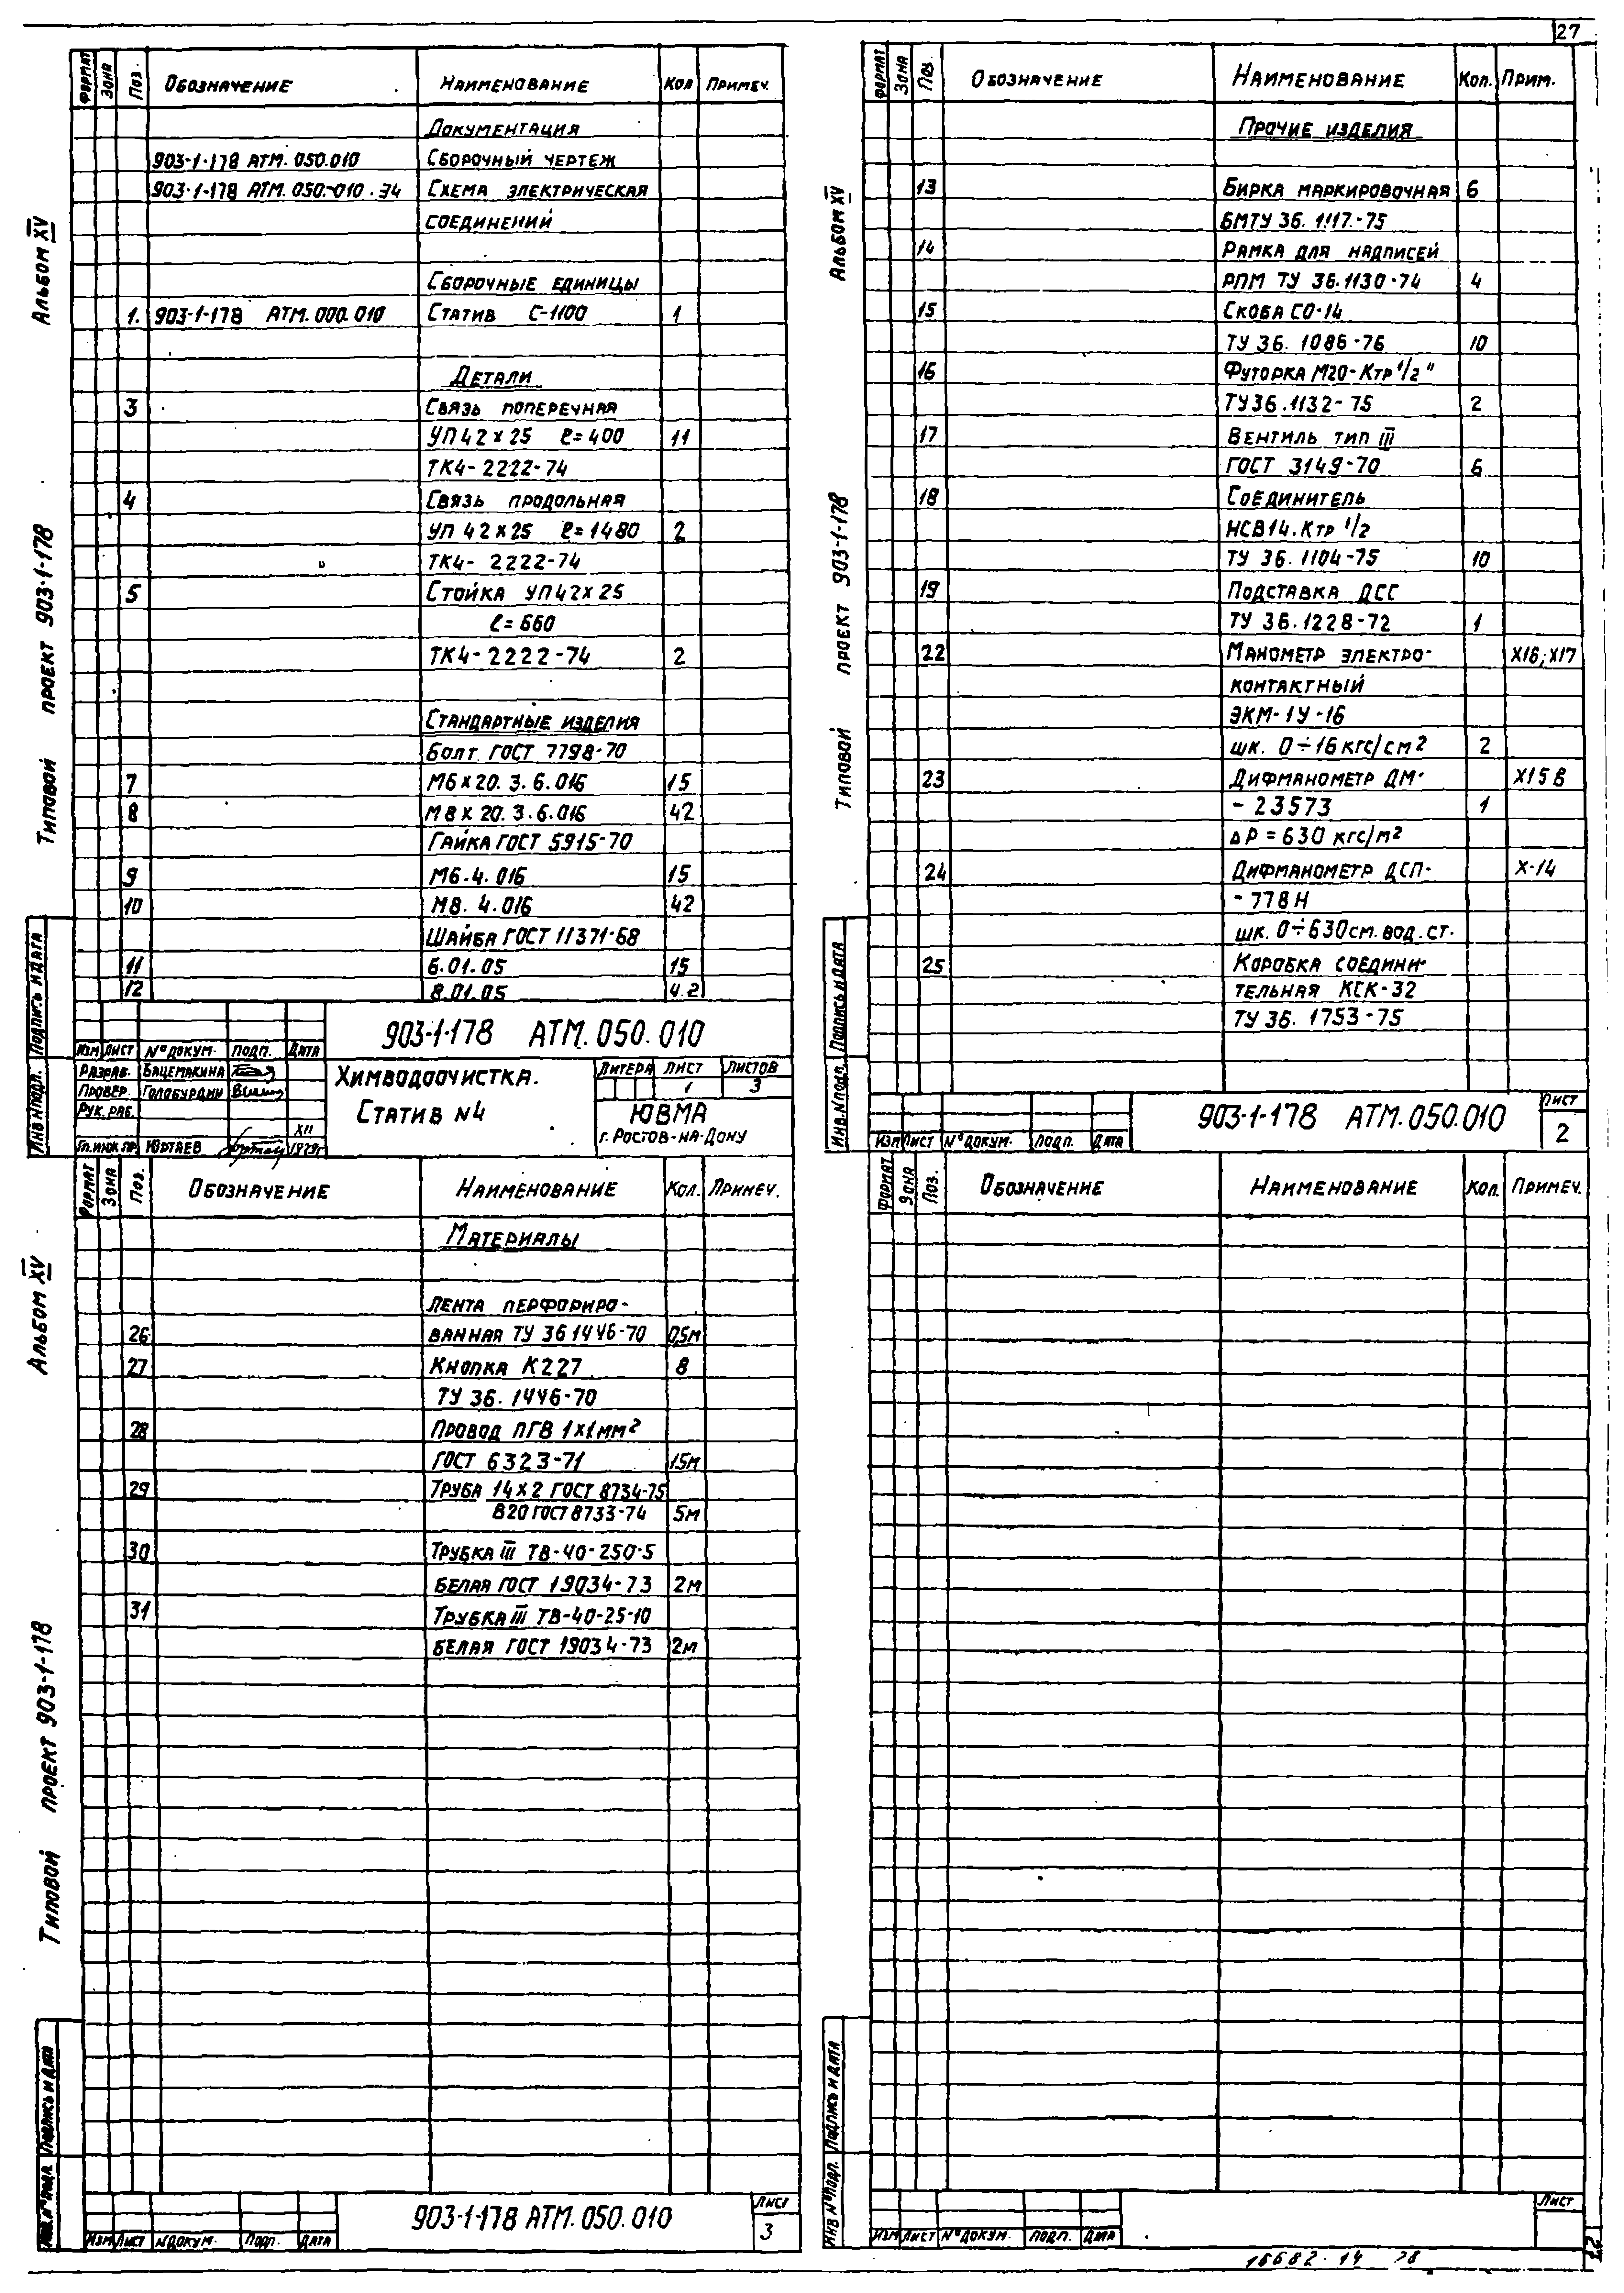 27
Формат Зона Поз. Обозначение Наименование Кол Примеч.
Документация
903-1-178 АТМ.050.010 Сборочный чертеж
903-1-178 АТМ.050-010.Э4 Схема электрическая
соединений
Сборочные единицы
1. 903-1-178 АТМ.000.010 Статив С-1100 1
Детали
3 Связь поперечная
УП 42×25 ℓ=400 11
ТК4-2222-74
4 Связь продольная
УП 42×25 ℓ=1480 2
ТК4-2222-74
5 Стойка УП42×25
ℓ=660
ТК4-2222-74 2
Стандартные изделия
Болт ГОСТ 7798-70
7 М6×20.3.6.016 15
8 М8×20.3.6.016 42
Гайка ГОСТ 5915-70
9 М6.4.016 15
10 М8.4.016 42
Шайба ГОСТ 11371-68
11 6.01.05 15
12 8.01.05 42
Альбом XV
Типовой проект 903-1-178
Инв № подл. Подпись и дата
903-1-178 АТМ.050.010
Изм Лист № докум. Подп. Дата
Разраб. Бацемакина
Провер. Голобурдин
Рук. раб.
Гл. инж. пр. Юртаев XII 1979г
Химводоочистка.
Статив №4
Литера Лист Листов
1 3
ЮВМА
г. Ростов-на-Дону
Формат Зона Поз. Обозначение Наименование Кол. Прим.
Прочие изделия
13 Бирка маркировочная 6
БМТУ 36.1117-75
14 Рамка для надписей
РПМ ТУ 36.1130-74 4
15 Скоба СО-14
ТУ 36.1086-76 10
16 Футорка М20-Ктр 1/2"
ТУ36.1132-75 2
17 Вентиль тип III
ГОСТ 3149-70 6
18 Соединитель
НСВ14.Ктр 1/2
ТУ 36.1104-75 10
19 Подставка ДСС
ТУ 36.1228-72 1
22 Манометр электро- Х16; Х17
контактный
ЭКМ-1У-16
шк. 0÷16 кгс/см² 2
23 Дифманометр ДМ- Х15 В
-23573 1
ΔР=630 кгс/м²
24 Дифманометр ДСП- Х-14
-778Н
шк. 0÷630 см.вод.ст.
25 Коробка соедини-
тельная КСК-32
ТУ 36.1753-75
Альбом XV
Типовой проект 903-1-178
Инв. № подл. Подпись и дата
Изм Лист № докум. Подп. Дата
903-1-178 АТМ.050.010
Лист
2
Формат Зона Поз. Обозначение Наименование Кол. Примеч.
Материалы
Лента перфориро-
26 ванная ТУ 36 1446-70 0,5м
27 Кнопка К227 8
ТУ 36.1446-70
28 Провод ПГВ 1×1мм²
ГОСТ 6323-71 15м
29 Труба 14×2 ГОСТ 8734-75
В20 ГОСТ 8733-74 5м
30 Трубка III ТВ-40-250-5
белая ГОСТ 19034-73 2м
31 Трубка III ТВ-40-25-10
белая ГОСТ 19034-73 2м
Альбом XV
Типовой проект 903-1-178
Инв. № подл. Подпись и дата
Изм Лист № докум. Подп. Дата
903-1-178 АТМ.050.010
Лист
3
Формат Зона Поз. Обозначение Наименование Кол. Примеч.
Инв № подл. Подпись и дата
Изм Лист № докум. Подп. Дата
Лист
16682-14 28